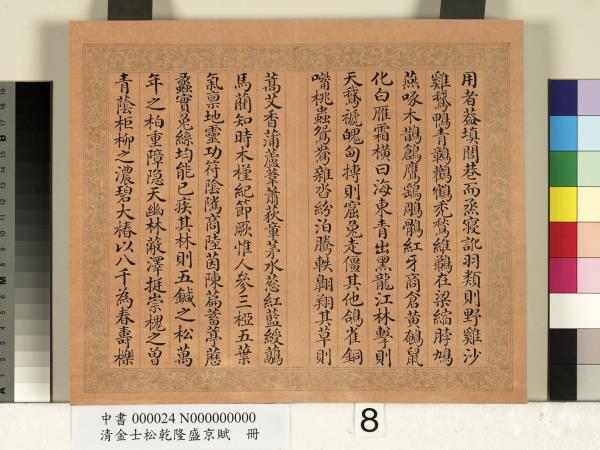 用者益填閭巷而烝寢訛羽類則野雞沙
雞鵞鴨青鶴鸛鶴禿鶖維鵜在梁縮脖鳩
燕啄木鵲鷹鷂鵰鶻紅牙商倉黃鵰鼠
化白雁霜橫曰海東青出黑龍江林擊則
天鵞褫魄甸摶則窟兔走僵其他鴿雀銅
嘴桃蟲鴛鴦雜沓紛泊騰軼翱翔其草則
蒿艾香蒲蘆葦蕭荻董茅水葱紅藍綬鷊
馬藺知時木槿紀節厥惟人參三椏五葉
氣禀地靈功符陰隲商陸茵陳萹蓄葶藶
蠡實兔絲均能已疾其林則五鍼之松萬
年之柏重障隱天幽林蔽澤挺崇槐之曾
青蔭柜柳之濃碧大椿以八千為春壽櫟
中書 000024 N000000000
清金士松乾隆盛京賦 冊
8